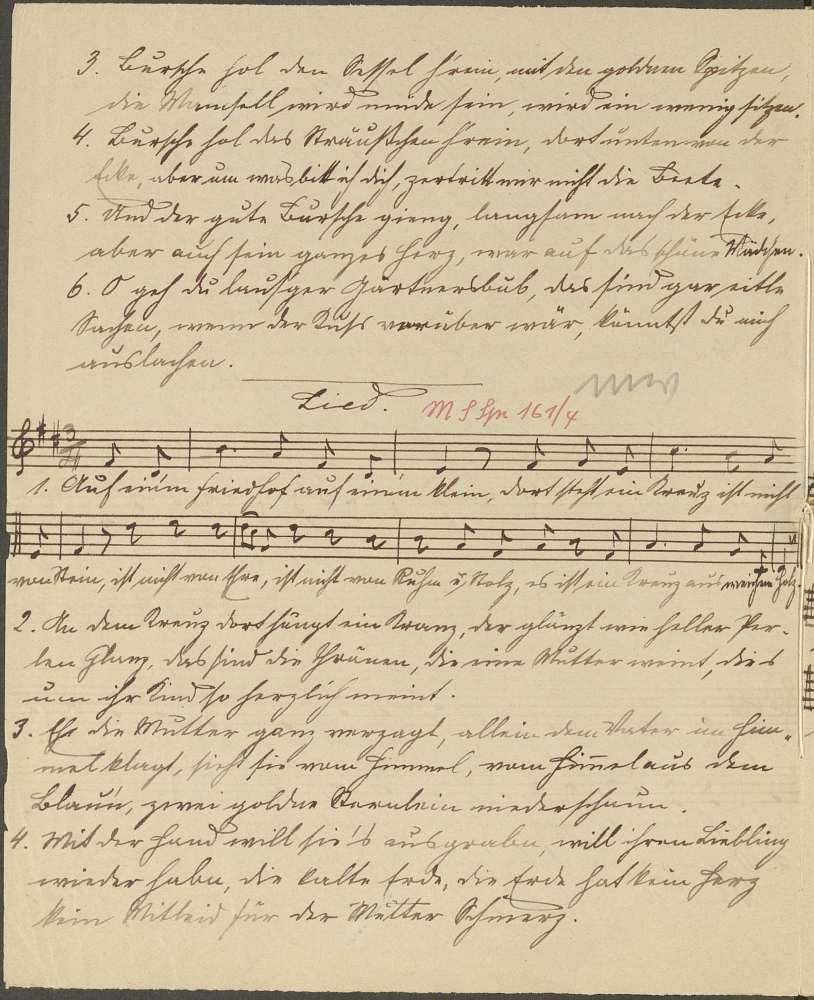 3. Bursche hol den Sessel h'rein, mit den goldnen Spitzen,
die Mamsell wird müde sein, wird ein wenig sitzen.
4. Bursche hol das Sträußchen h'rein, dort unten von der
Ecke, aber um was bitt ich dich, zertritt mir nicht die Beete.
5. Und der gute Bursche gieng, langsam nach der Ecke,
aber auch sein ganzes Herz, war auf das schöne Mädchen.
6. O geh du laus'ger Gärtnersbub, das sind gar eitle
Sachen, wenn der Kuss vorüber wär, könntst du mich
auslachen.
Lied.
1. Auf einem Friedhof auf einem klein, dort steht ein Kreuz ist nicht
von Stein, ist nicht von Ehre, ist nicht von Ruhm u. Stolz, es ist ein Kreuz aus weichem Holz.
2. An dem Kreuz dort hängt ein Kranz, der glänzt wie heller Per-
len Glanz, das sind die Thränen, die eine Mutter weint, die s
um ihr Kind so herzlich meint.
3. Eh' die Mutter ganz verzagt, allein dem Vater im Him-
mel klagt, sieht sie vom Himmel, vom Himmel aus dem
Blau'n, zwei goldne Sternlein niederschaun.
4. Mit der Hand will sie's ausgrabn, will ihren Liebling
wieder habn, die kalte Erde, die Erde hat kein Herz
kein Mitleid für der Mutter Schmerz.